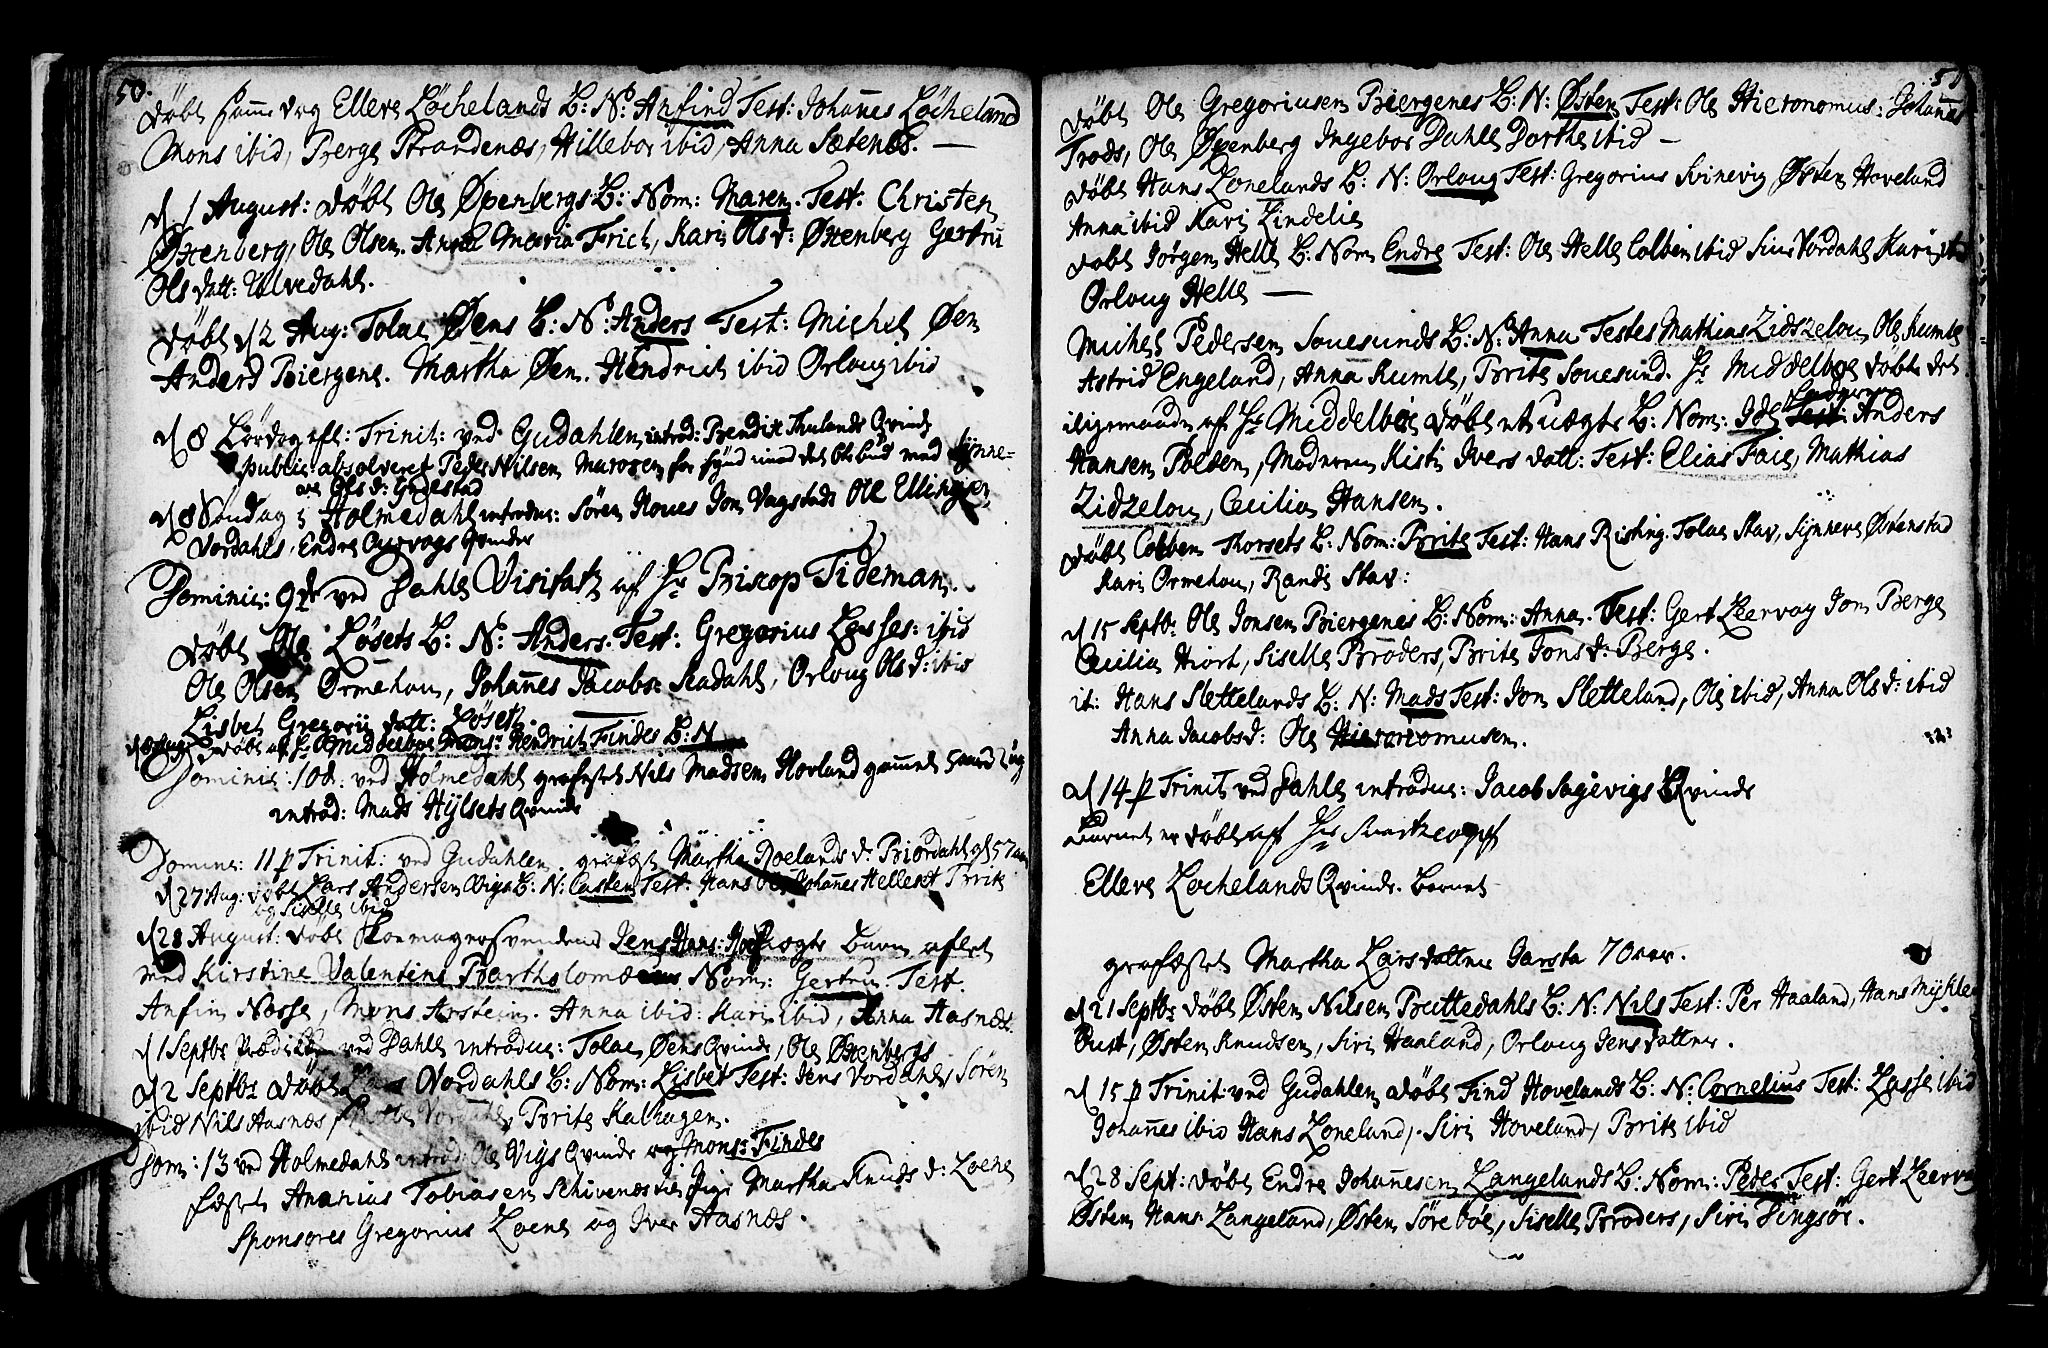 50.
Døbt samme dag Ellers Løchelands B: N: Anfind Test: Johannes Løcheland
Mons ibid, Berge Strandenæs, Hillebor ibid, Anna Sætenes. —
d 1 August: døbt Ole Øxenbergs B: Nom: Maren. Test: Christen
Øxenberg, Ole Olsen. Anna Maria Frich, Kari Ols d: Øxenberg Gertru
Ols datt: Ulvedahl.
Døbt d 2 Aug: Tolac Øens B: N: Anders Test: Michel Øen
Anders Biergene. Martha Øen. Hendrich ibid Orloug ibid
d 8 Lørdag eft: Trinit: ved Gudahlen introd: Bendix Thulands Qvinde
public: absolveret Peder Nilsen Marosen for synd imod det 6te bud med Synne-
ve Ols d: Grøestad
d 8 Søndag i Holmedahl introduc: Søren Hoves Jon Vagstads Ole Ellingsen
Vordahls, Endre Qvervogs Qvinder
Dominic: 9de ved Dahle Visitatz af Hr Biscop Tideman.
Døbt Ole Løsets B: N: Anders. Test: Gregorius Lasses: ibid
Ole Olsen Ormehou, Johannes Jacobs: Seadahl, Orloug Ols d: ibid
Lisbet Gregorii datt: Løset.
døbt af Hr Middelboe Hendrich Findes B: N
Dominic: 10de ved Holmedahl græfestet Nils Madsen Hovland gammel
introd: Mads Hylsets Qvinde
Domine: 11 p Trinit: ved Gudahlen græfest Martha Roelands d: Biordahl 57 aar
d 27 Aug: døbt Lars Andersen Vigs B: N: Casten Test: Hans Johannes Hellesæt Brite
og Siselle ibid
d 28 August: døbt Skomagersvendens Jens Hans: uægte barn aflet
med Kirstine Valentins Bartholomæus Nom: Gertru. Test.
Anfin Nosse, Mons Arstein. Anna ibid: Kari ibid, Anna Aasnæs.
d 1 Septbr Prædiken ved Dahle introduc: Tolac Øens Qvinde, Ole Øxenbergs
d 2 Septbr døbt Vordahls B: Nom: Lisbet Test: Jens Vordahl, Søren
ibid Nils Aasnæs Vordahl, Brite Kalhagen.
Dom: 13 ved Holmedahl introd: Ole Vigs Qvinde og Mons: Findes
fæstet Ananias Tobiasen Schivenæs til Pige Martha Knuds d: Loene
Sponsores Gregorius Loene og Iver Aasnæs.
51
Døbt Ole Gregoriusen Biergenes B: N: Østen Test: Ole Hieronomus: Johannes
Trods, Ole Øxenberg Ingebor Dahle Dorthe ibid —
døbt Hans Lonelands B: N: Orloug Test: Gregorius Svinevig Østen Hoveland
Anna ibid Kari Lindelie
døbt Jørgen Helle B: Nom Endre Test: Ole Helle Colben ibid Siur Vordahl Kari ibid
Orloug Helle —
Michel Pedersen Souesunds B: N: Anna Testes Mathias Zidszelou Ole Kumle
Astrid Engeland, Anna Kumle, Brite Souesund. Hr Middelboe døbte det
iligemaade af Hr Middelboe døbt et uægte B: Nom: Ide Fader Anders
Hansen Polden, Moderen Kisti Ivers datt: Test: Elias Faie, Mathias
Zidzelou, Cecilia Hansen.
døbt Colben Thorsets B: Nom: Brite Test: Hans Risting. Tolac Stav, Synneve Østenstad
Kari Ormehou, Randi Stav:
d 15 Septbr Ole Jonsen Biergenes B: Nom: Anna. Test: Gert Leervog Jon Berge
Cecilia Hiort, Siselle Broders, Brite Jons d: Berge.
it: Hans Slettelands B: N: Mads Test: Jon Sletteland, Ole ibid, Anna Ols d: ibid
Anna Jacobs d: Ole Hieronomusen.
d 14 p Trinit ved Dahle introduc: Jacob Sagevigs Qvinde
Barnet er døbt af Hr Svartzcopf
Ellers Lochelands Qvinde. Barnet
græfæstet Martha Larsdatter Garsta 70 aar.
d 21 Septbr døbt Østen Nilsen Buttedahls B: N: Nils Test: Per Haaland, Hans Myckle
Bust, Østen Knudsen, Siri Haaland, Orloug Jensdatter.
d 15 p Trinit: ved Gudahlen døbt Find Hovelands B: N: Cornelius Test: Lasse ibid
Johannes ibid Hans Loneland, Siri Hoveland, Brite ibid
d 28 Sept: døbt Endre Johannesen Langelands B: Nom: Peder Test: Gert Leervog
Østen Hans: Langeland, Østen Sørebøe, Siselle Broders, Siri Tingsør.